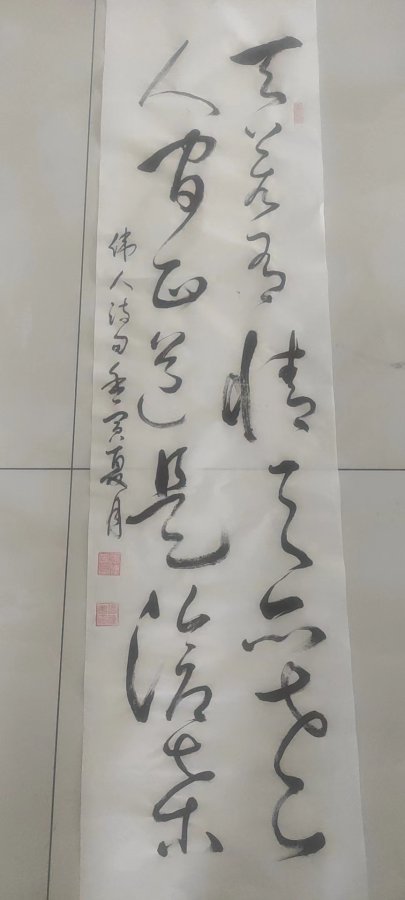 天若有情天亦老
人间正道是沧桑
伟人诗句壬寅夏月